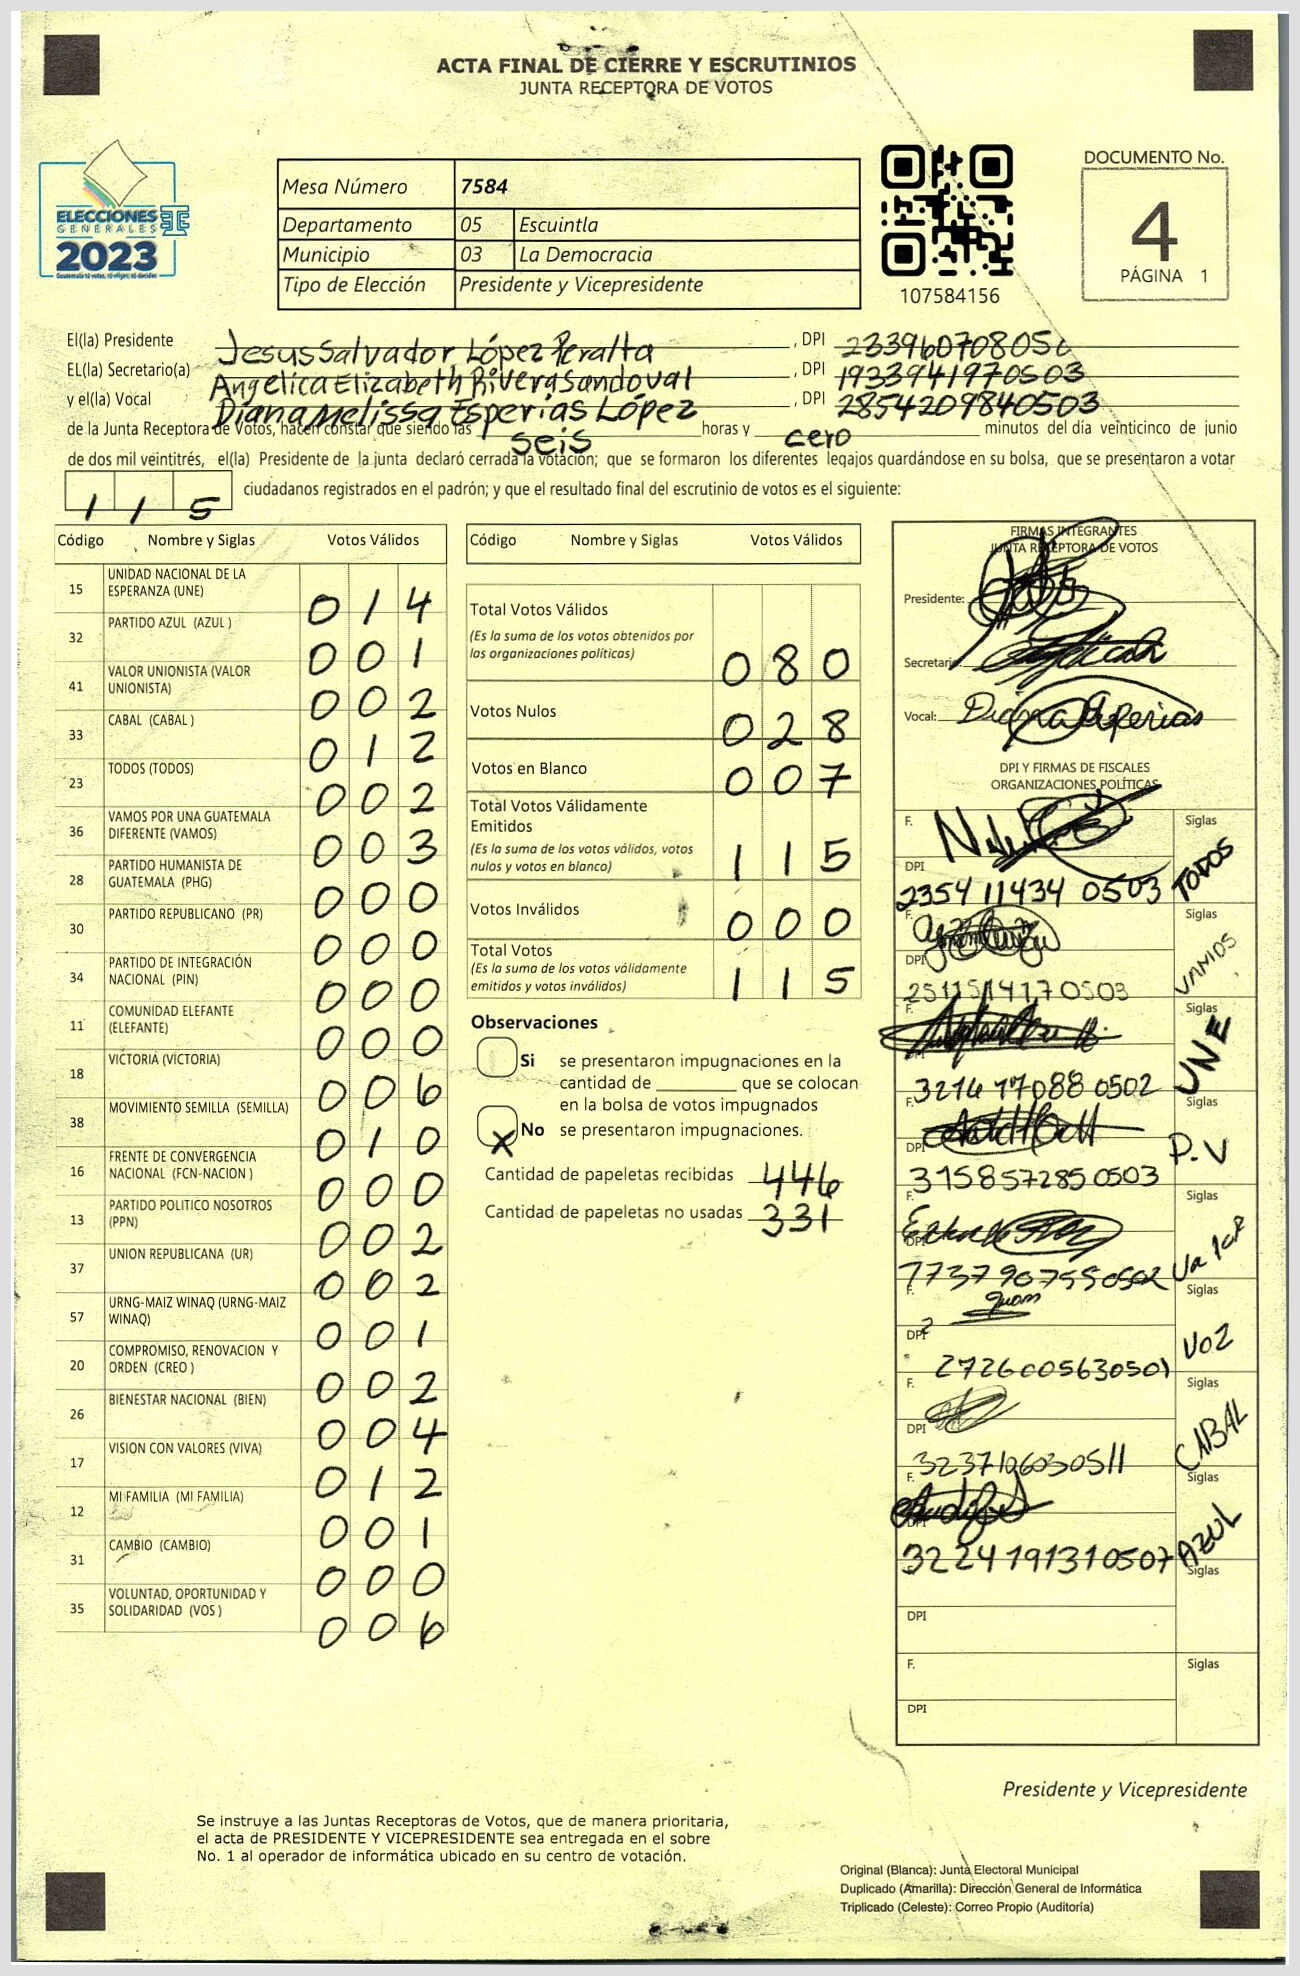 ACTA FINAL DE CIERRE Y ESCRUTINIOS
JUNTA RECEPTORA DE VOTOS
ELECCIONES
GENERALES
2023
Mesa Número 7584
Departamento 05 Escuintla
Municipio 03 La Democracia
Tipo de Elección Presidente y Vicepresidente
107584156
DOCUMENTO No.
4
PÁGINA 1
El(la) Presidente Jesus Salvador López Peralta , DPI
EL(la) Secretario(a) Angelica Elizabeth Rivera Sandoval , DPI 1933941970503
y el(la) Vocal Diana Melissa Esperias López , DPI 2854209840503
de la Junta Receptora de Votos, hacen constar que siendo las seis horas y cero minutos del día veinticinco de junio
de dos mil veintitrés, el(la) Presidente de la junta declaró cerrada la votación; que se formaron los diferentes legajos guardándose en su bolsa, que se presentaron a votar
1 1 5 ciudadanos registrados en el padrón; y que el resultado final del escrutinio de votos es el siguiente:
Código Nombre y Siglas Votos Válidos
15 UNIDAD NACIONAL DE LA
ESPERANZA (UNE) 0 1 4
32 PARTIDO AZUL (AZUL ) 0 0 1
41 VALOR UNIONISTA (VALOR
UNIONISTA) 0 0 2
33 CABAL (CABAL ) 0 1 2
23 TODOS (TODOS) 0 0 2
36 VAMOS POR UNA GUATEMALA
DIFERENTE (VAMOS) 0 0 3
28 PARTIDO HUMANISTA DE
GUATEMALA (PHG) 0 0 0
30 PARTIDO REPUBLICANO (PR) 0 0 0
34 PARTIDO DE INTEGRACIÓN
NACIONAL (PIN) 0 0 0
11 COMUNIDAD ELEFANTE
(ELEFANTE) 0 0 0
18 VICTORIA (VICTORIA) 0 0 6
38 MOVIMIENTO SEMILLA (SEMILLA) 0 1 0
16 FRENTE DE CONVERGENCIA
NACIONAL (FCN-NACION ) 0 0 0
13 PARTIDO POLITICO NOSOTROS
(PPN) 0 0 2
37 UNION REPUBLICANA (UR) 0 0 2
57 URNG-MAIZ WINAQ (URNG-MAIZ
WINAQ) 0 0 1
20 COMPROMISO, RENOVACION Y
ORDEN (CREO ) 0 0 2
26 BIENESTAR NACIONAL (BIEN) 0 0 4
17 VISION CON VALORES (VIVA) 0 1 2
12 MI FAMILIA (MI FAMILIA) 0 0 1
31 CAMBIO (CAMBIO) 0 0 0
35 VOLUNTAD, OPORTUNIDAD Y
SOLIDARIDAD (VOS ) 0 0 6
Código Nombre y Siglas Votos Válidos
Total Votos Válidos
(Es la suma de los votos obtenidos por
las organizaciones políticas) 0 8 0
Votos Nulos 0 2 8
Votos en Blanco 0 0 7
Total Votos Válidamente
Emitidos
(Es la suma de los votos válidos, votos
nulos y votos en blanco) 1 1 5
Votos Inválidos 0 0 0
Total Votos
(Es la suma de los votos válidamente
emitidos y votos inválidos) 1 1 5
Observaciones
Si se presentaron impugnaciones en la
cantidad de ________ que se colocan
en la bolsa de votos impugnados
X No se presentaron impugnaciones.
Cantidad de papeletas recibidas 446
Cantidad de papeletas no usadas 331
FIRMAS INTEGRANTES
JUNTA RECEPTORA DE VOTOS
Presidente:
Secretario:
Vocal: Diana Esperias
DPI Y FIRMAS DE FISCALES
ORGANIZACIONES POLÍTICAS
F. Siglas
DPI 2354 11434 0503 TODOS
F. Siglas
DPI 2511514170503 VAMOS
F. Siglas
DPI 3216 17088 0502 UNE
F. Siglas
DPI 3158572850503 P.V
F. Siglas
DPI
F. Siglas
DPI 2726005630501 VOZ
F. Siglas
DPI 3237106030511 CABAL
F. Siglas
DPI 3224191310507 AZUL
F. Siglas
DPI
F. Siglas
DPI
Presidente y Vicepresidente
Se instruye a las Juntas Receptoras de Votos, que de manera prioritaria,
el acta de PRESIDENTE Y VICEPRESIDENTE sea entregada en el sobre
No. 1 al operador de informática ubicado en su centro de votación.
Original (Blanca): Junta Electoral Municipal
Duplicado (Amarilla): Dirección General de Informática
Triplicado (Celeste): Correo Propio (Auditoría)